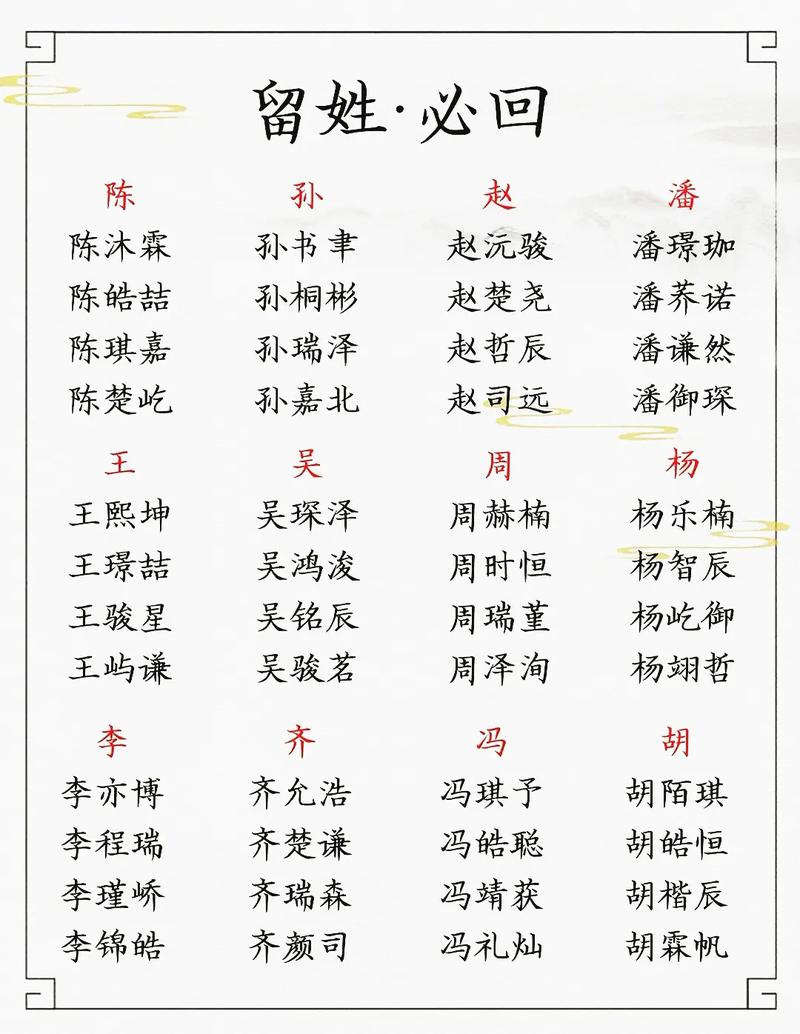 留姓·必回
陈 孙 赵 潘
陈沐霖 孙书聿 赵沅骏 潘璟珈
陈皓喆 孙桐彬 赵楚尧 潘荞诺
陈琪嘉 孙瑞泽 赵哲辰 潘谦然
陈楚屹 孙嘉北 赵司远 潘御琛
王 吴 周 杨
王熙坤 吴琛泽 周赫楠 杨乐楠
王璟喆 吴鸿浚 周时恒 杨智辰
王骏星 吴铭辰 周瑞堇 杨屹御
王屿谦 吴骏茗 周泽洵 杨翊哲
李 齐 冯 胡
李亦博 齐允浩 冯琪予 胡陌琪
李程瑞 齐楚谦 冯皓聪 胡皓恒
李瑾峤 齐瑞森 冯靖获 胡楷辰
李锦皓 齐颜司 冯礼灿 胡霖帆